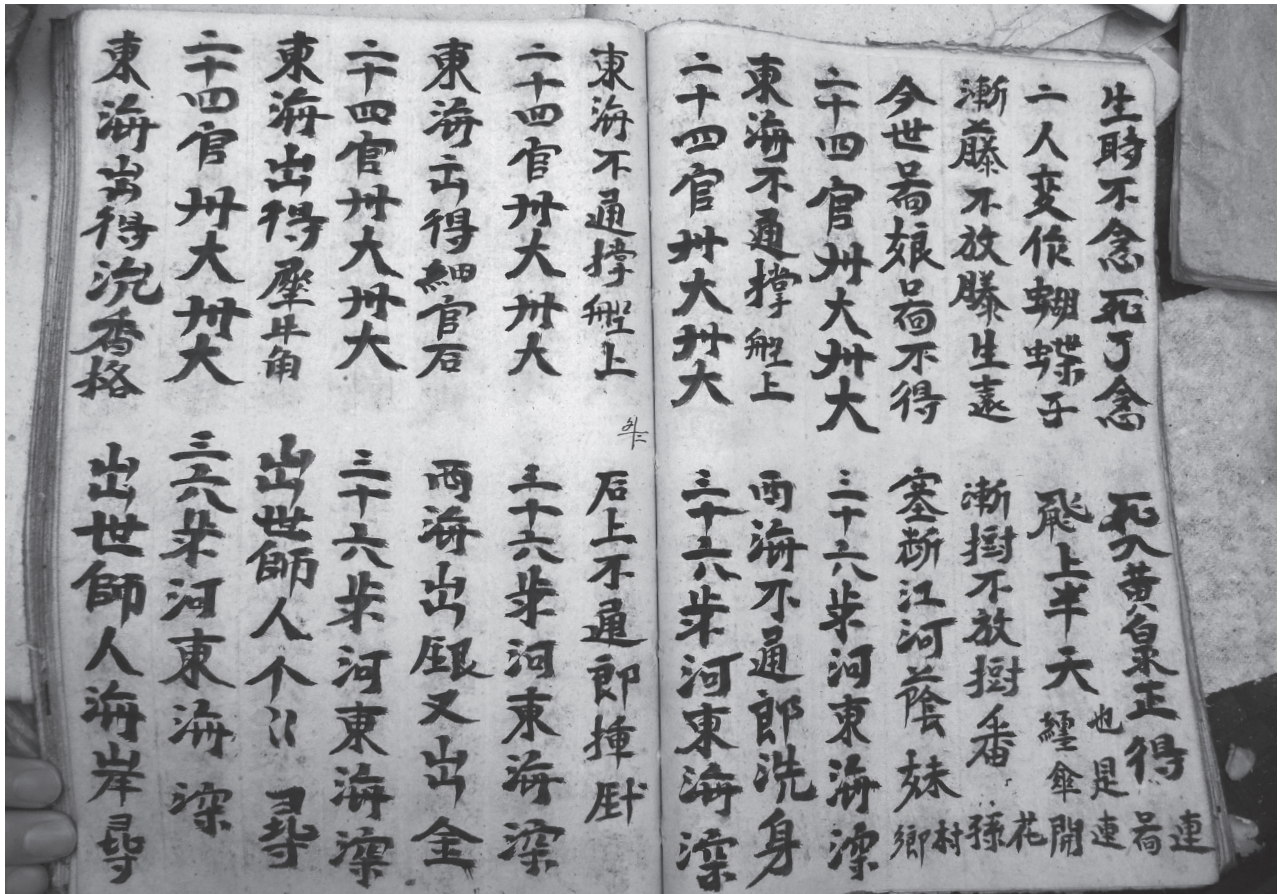 生時不念死了念 死入黄泉正得荷連
也是連
二人变作蝴蝶子 飛上半天纏傘開花
漸藤不放藤生遠 漸樹不放樹番孫
今世咼娘咼不得 塞断江河蔭妹鄉村
二十四官州大州大 三十六条河東海深
東海不通撑船上 西海不通郎洗身
二十四官州大州大 三十六条河東海深
東海不通撑船上 后上不通郎
二十四官州大州大 三十六条河東海深
東海出得細官石 西海出銀又出金
二十四官州大州大 三十六条河東海深
東海出得犀牛角 出世師人个〻尋
二十四官州大州大 三六条河東海深
東海出得沉香格 出世師人海岸尋